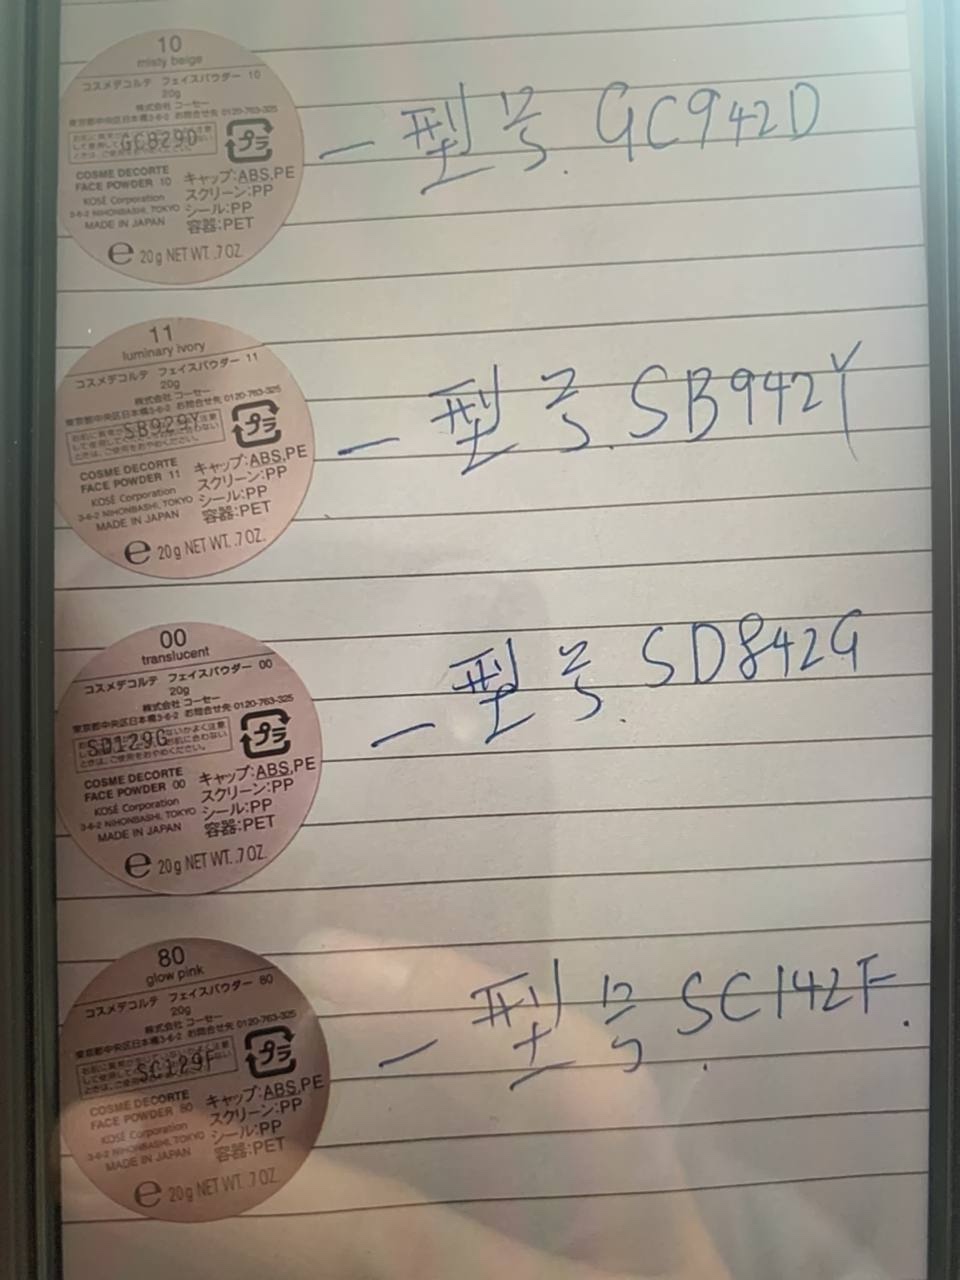 10
misty beige
コスメデコルテ フェイスパウダー 10
20g
株式会社 コーセー
東京都中央区日本橋3-6-2 お問合せ先 0120-763-325
GC829D
プラ
COSME DECORTE
FACE POWDER 10
KOSÉ Corporation
3-6-2 NIHONBASHI, TOKYO
MADE IN JAPAN
キャップ:ABS,PE
スクリーン:PP
シール:PP
容器:PET
e 20g NET WT. .7 OZ.
一 型号. GC942D
11
luminary ivory
コスメデコルテ フェイスパウダー 11
20g
株式会社 コーセー
東京都中央区日本橋3-6-2 お問合せ先 0120-763-325
SB929Y
プラ
COSME DECORTE
FACE POWDER 11
KOSÉ Corporation
3-6-2 NIHONBASHI, TOKYO
MADE IN JAPAN
キャップ:ABS,PE
スクリーン:PP
シール:PP
容器:PET
e 20g NET WT. .7 OZ.
一 型号. SB942Y
00
translucent
コスメデコルテ フェイスパウダー 00
20g
株式会社 コーセー
東京都中央区日本橋3-6-2 お問合せ先 0120-763-325
SD129G
プラ
COSME DECORTE
FACE POWDER 00
KOSÉ Corporation
3-6-2 NIHONBASHI, TOKYO
MADE IN JAPAN
キャップ:ABS,PE
スクリーン:PP
シール:PP
容器:PET
e 20g NET WT. .7 OZ.
一 型号. SD842G
80
glow pink
コスメデコルテ フェイスパウダー 80
20g
株式会社 コーセー
東京都中央区日本橋3-6-2 お問合せ先 0120-763-325
SC129F
プラ
COSME DECORTE
FACE POWDER 80
KOSÉ Corporation
3-6-2 NIHONBASHI, TOKYO
MADE IN JAPAN
キャップ:ABS,PE
スクリーン:PP
シール:PP
容器:PET
e 20g NET WT. .7 OZ.
一 型号. SC142F.